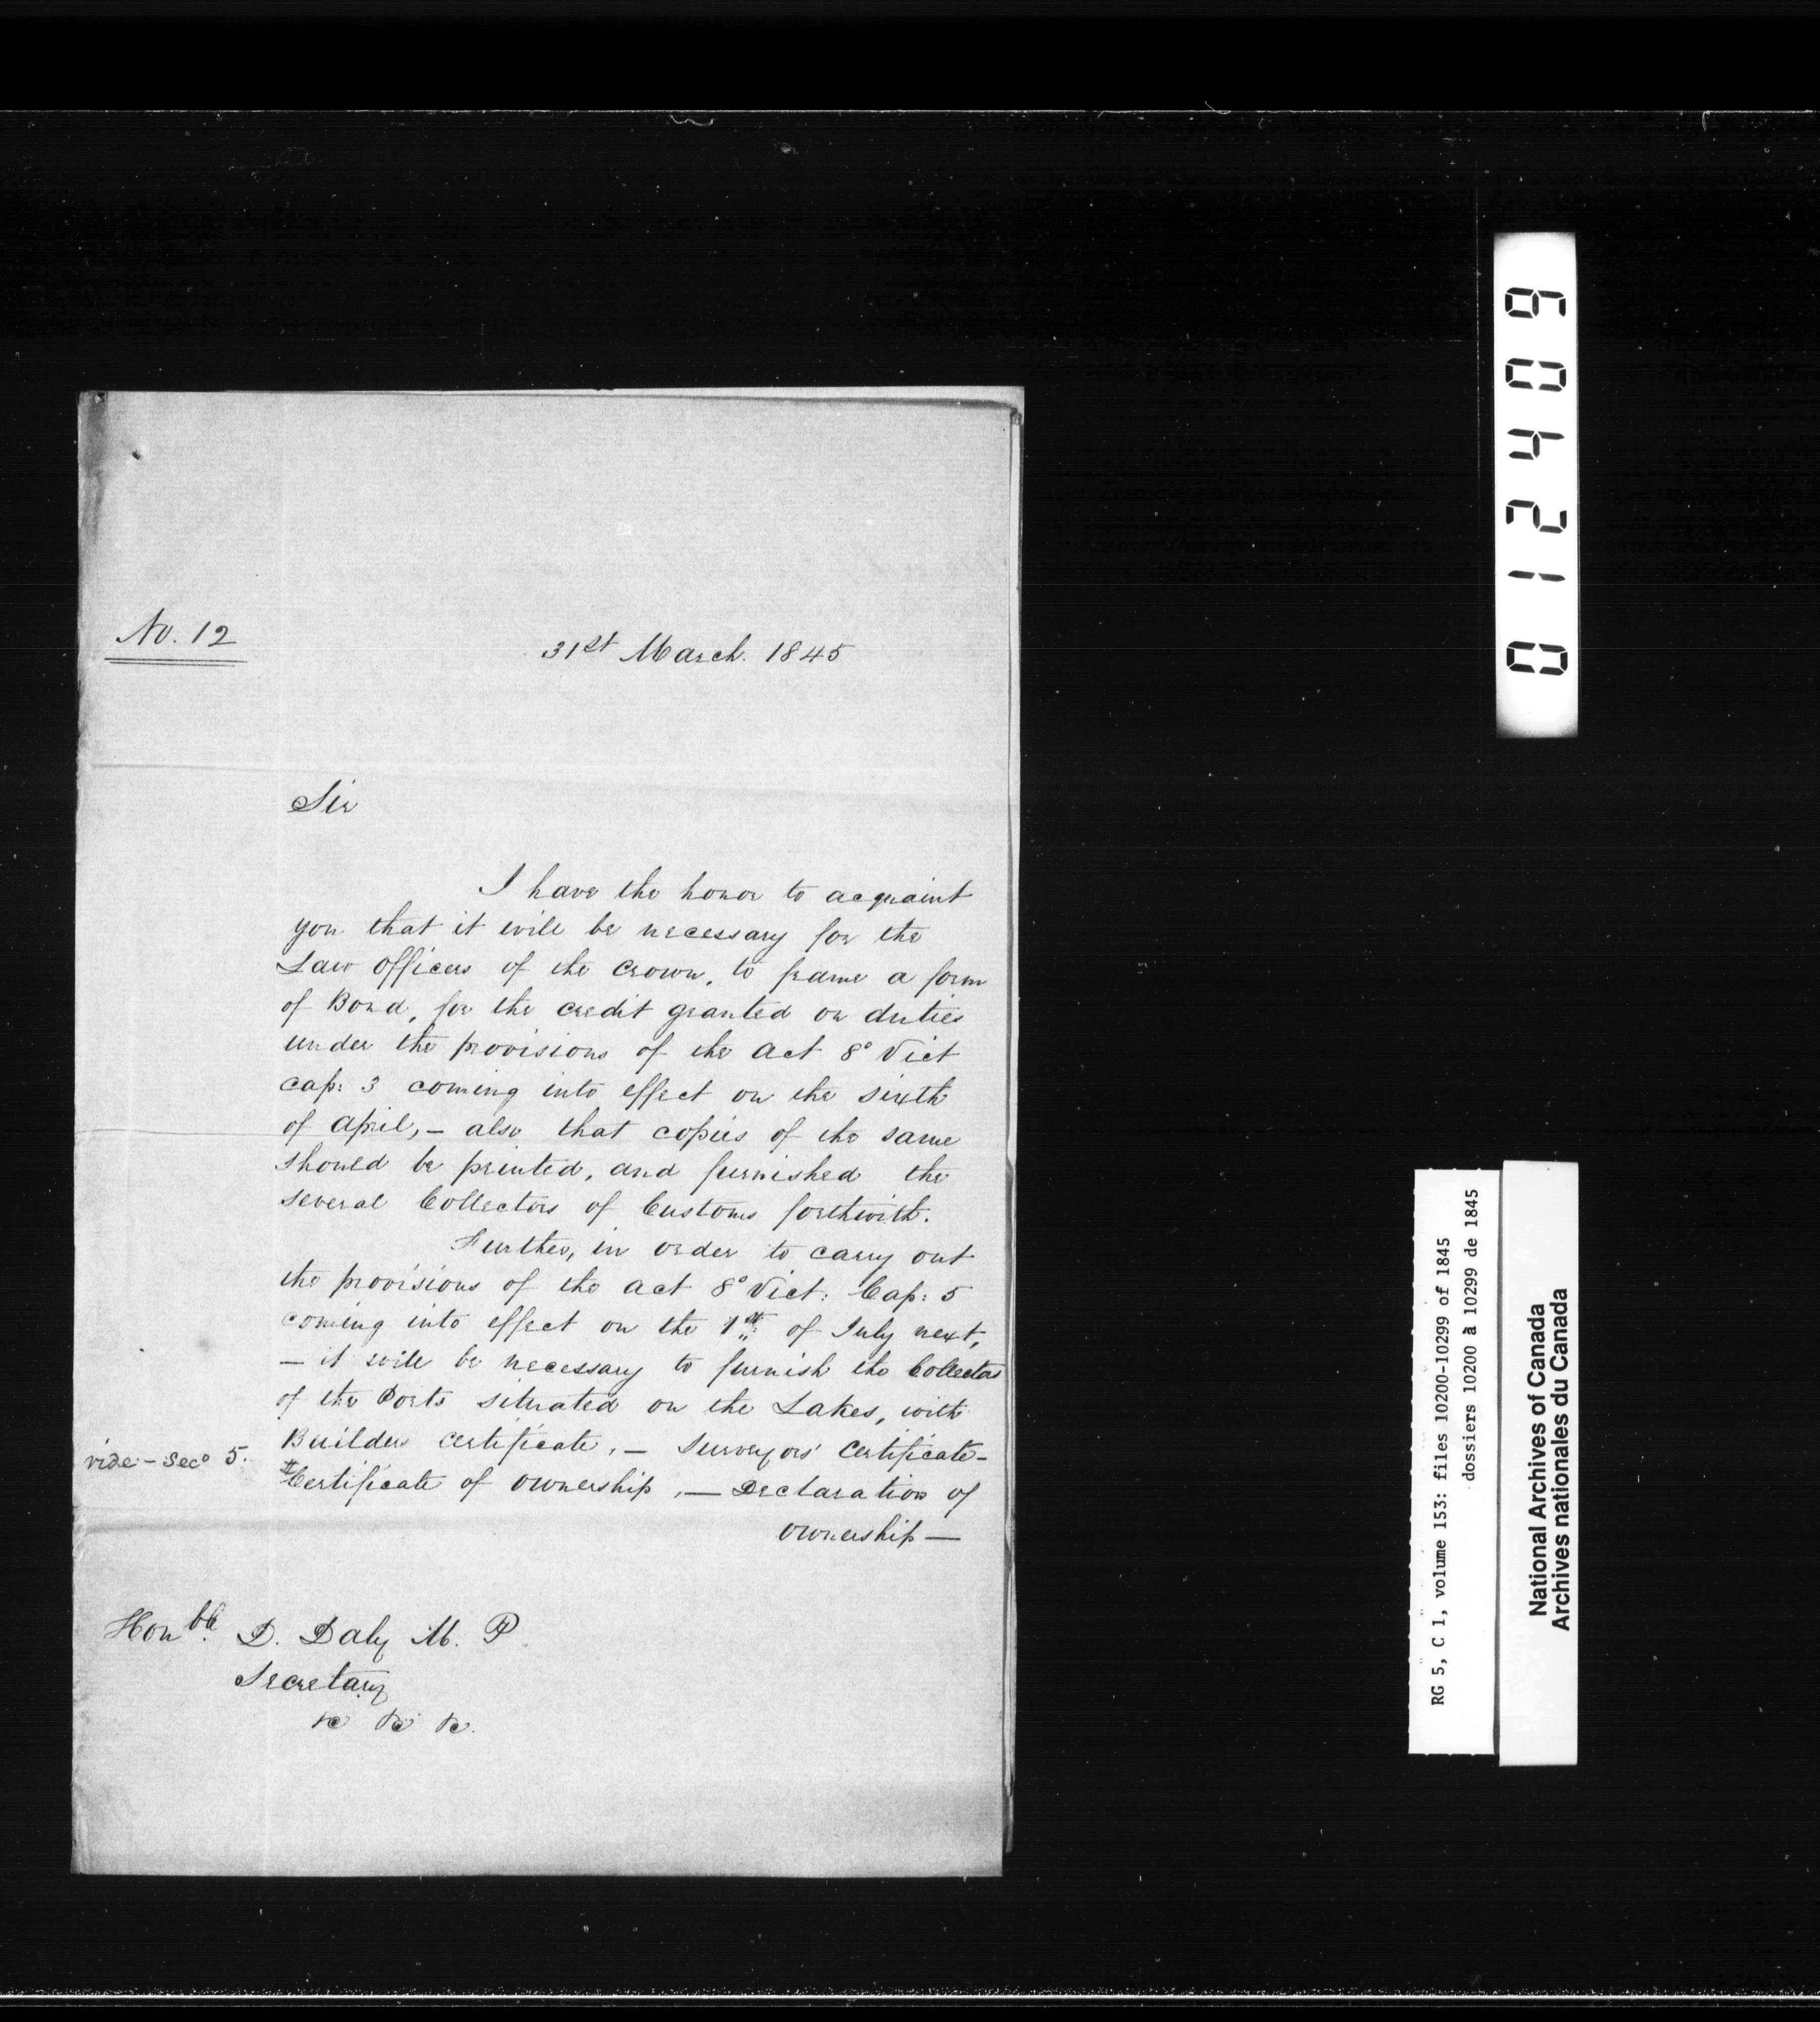 No. 12
31st March. 1845
Sir
I have the honor to acquaint
you that it will be necessary for the
Law Officers of the Crown, to frame a form
of Bond, for the credit granted on duties
under the provisions of the act 8° Vict
cap: 3 coming into effect on the sixth
of april, – also that copies of the same
should be printed, and furnished the
several Collectors of Customs forthwith.
Further, in order to carry out
the provisions of the act 8° Vict: Cap: 5
coming into effect on the 1st: of July next,
– it will be necessary to furnish the Collectors
of the Ports situated on the Lakes, with
Builders certificate, – Surveyors' Certificate –
vide – Seco 5.
#Certificate of Ownership, – Declaration of
Ownership –
Honble. D. Daly M. P
Secretary
&c &c &c.
012409
RG 5, C 1, volume 153: files 10200-10299 of 1845
dossiers 10200 à 10299 de 1845
National Archives of Canada
Archives nationales du Canada